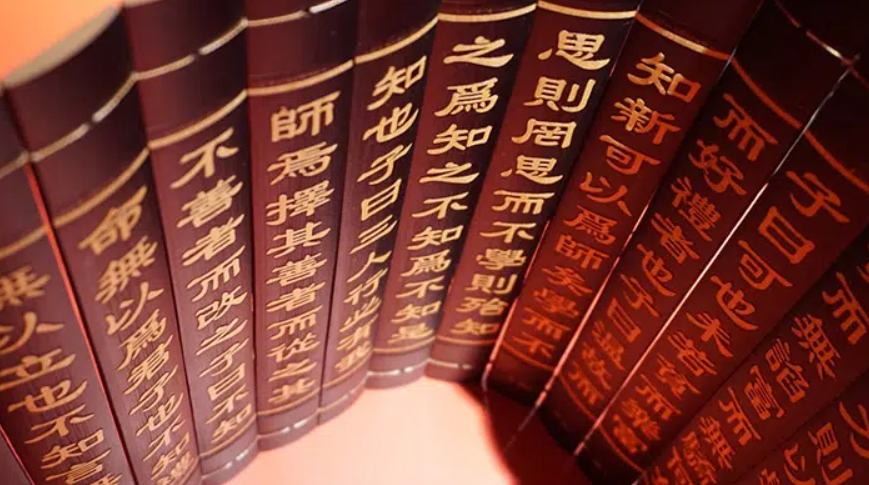 力則以
而無諂富而無驕
子曰可也未若貧而樂富
而好禮者也子曰溫故而
知新可以爲師矣學而不
思則罔思而不學則殆知
之爲知之不知爲不知是
知也子曰三人行必有我
師焉擇其善者而從之其
不善者而改之子曰不知
命無以爲君子也不知禮
無以立也不知言